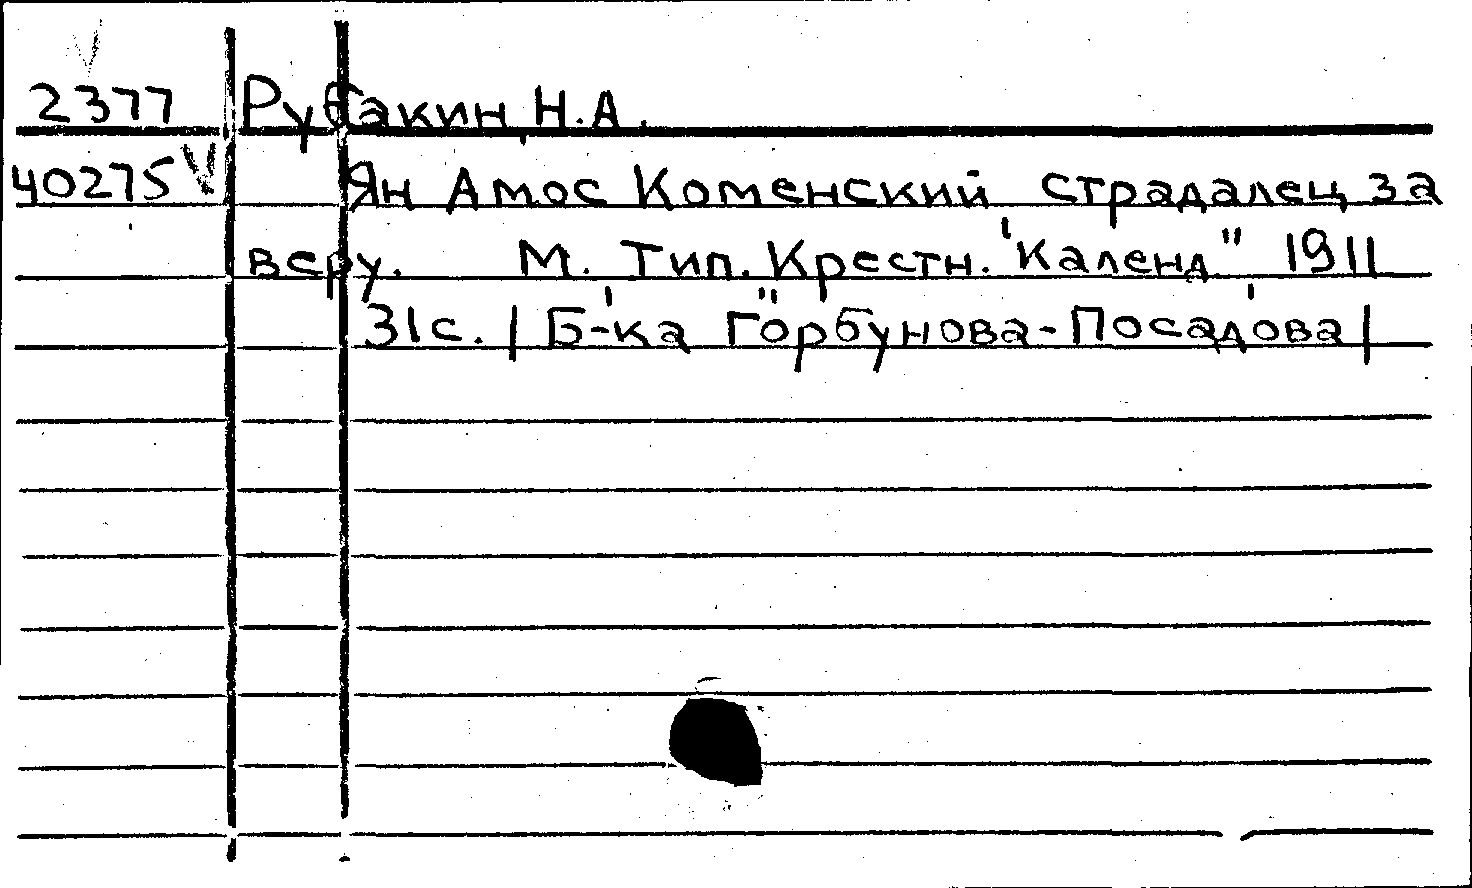 2377 Рубакин, Н.А.
40275 Ян Амос Коменский страдалец за
веру. М. Тип. Крестн. "Календ" 1911
31с. | Б-ка Горбунова-Посадова |